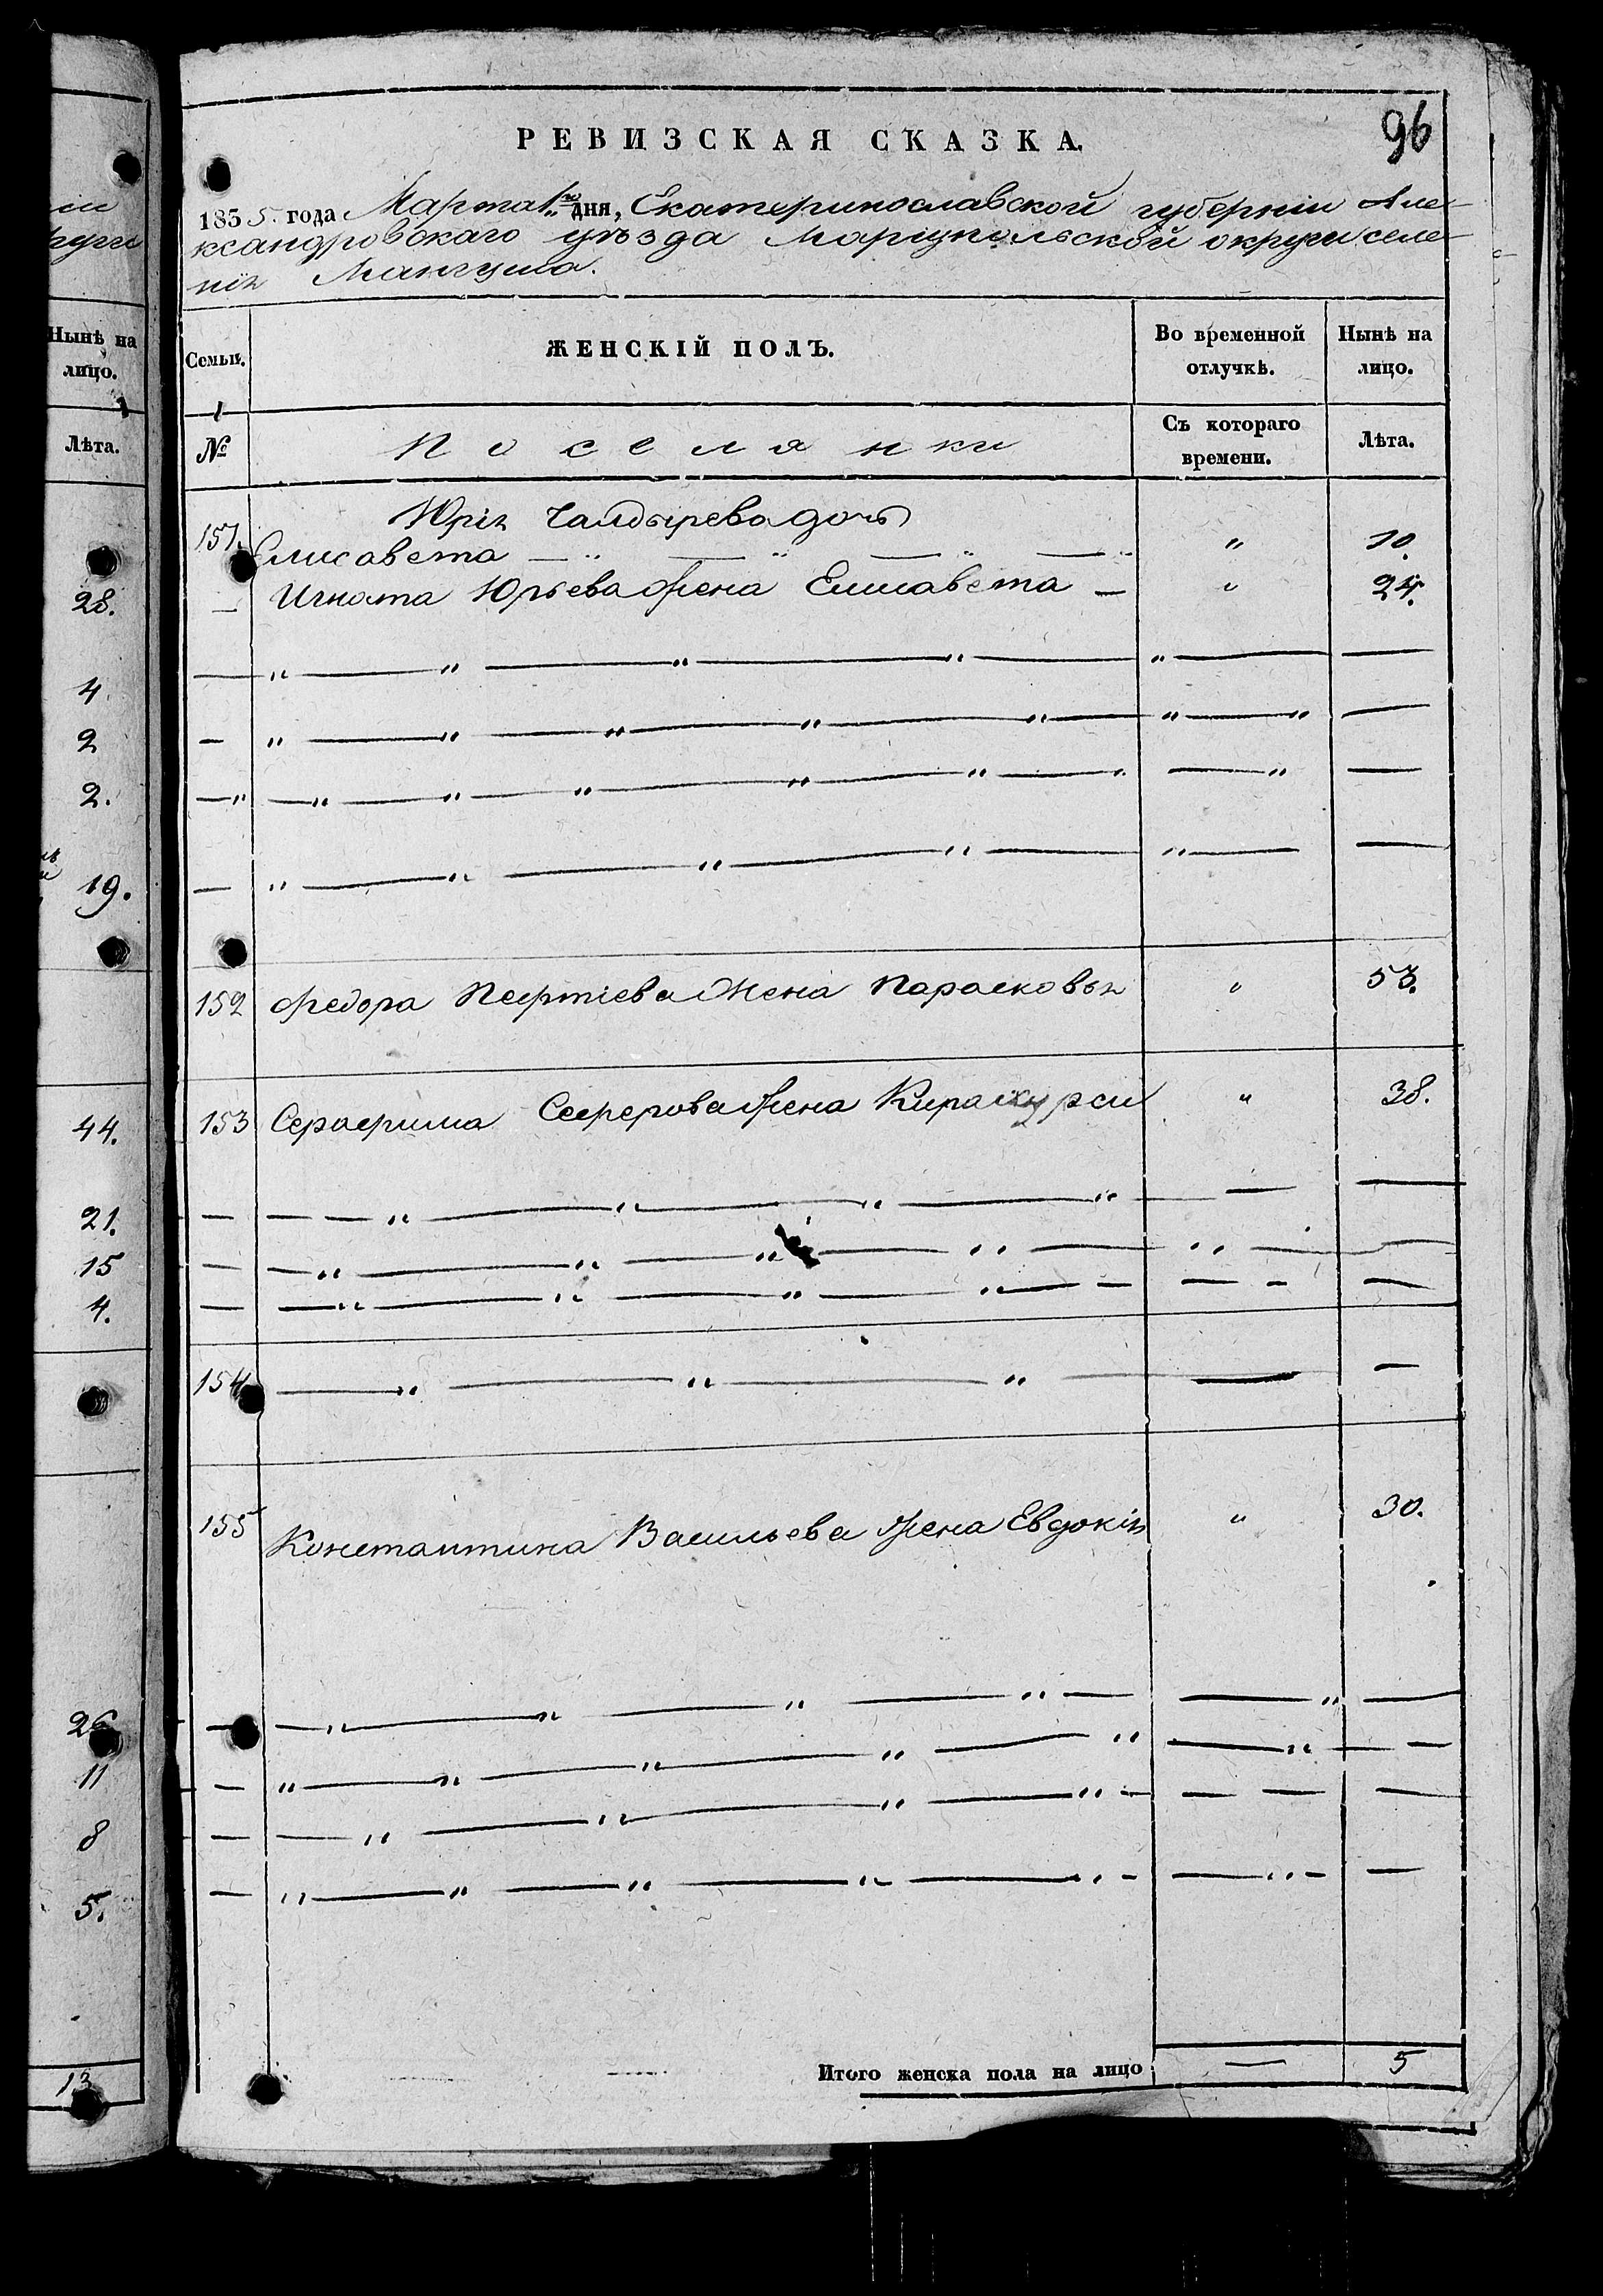 96
РЕВИЗСКАЯ СКАЗКА.
1835 года Марта 1го дня, Екатеринославской губерніи Але-
ксандровскаго уѣзда Маріупольской округи селе-
нія Мангуша.
Семьи.
ЖЕНСКІЙ ПОЛЪ.
Во временной отлучкѣ.
Нынѣ на лицо.
№
Поселянки
Съ котораго времени.
Лѣта.
Юрія Чалдырева дочь
151. Елисавета — " — " — " — " 10.
— Игната Юрьева жена Елисавета — " 24.
152 Федора Пефтіева жена Парасковья " 53.
153 Серафима Сеферова жена " 38.
154 — " — " — " — —
155 Константина Васильева жена Евдокія " 30.
Итого женска пола на лицо — 5
Нынѣ на
лицо.
Лѣта.
28.
4.
2
2.
19.
44.
21.
15
4.
26
11
8
5.
13